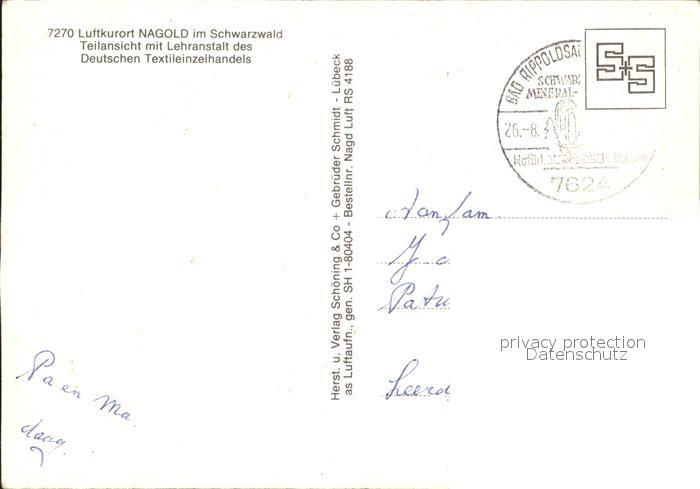 7270 Luftkurort NAGOLD im Schwarzwald
Teilansicht mit Lehranstalt des
Deutschen Textileinzelhandels
Herst. u. Verlag Schöning & Co + Gebrüder Schmidt - Lübeck
as Luftaufn., gen. SH 1-80404 - Bestellnr. Nagd Luft RS 4186
S+S
BAD RIPPOLDSA
SCHWAR
MINERAL-
26.-8.
7624
Fam
Patr
Heerd
privacy protection
Datenschutz
Pa en Ma.
daag.